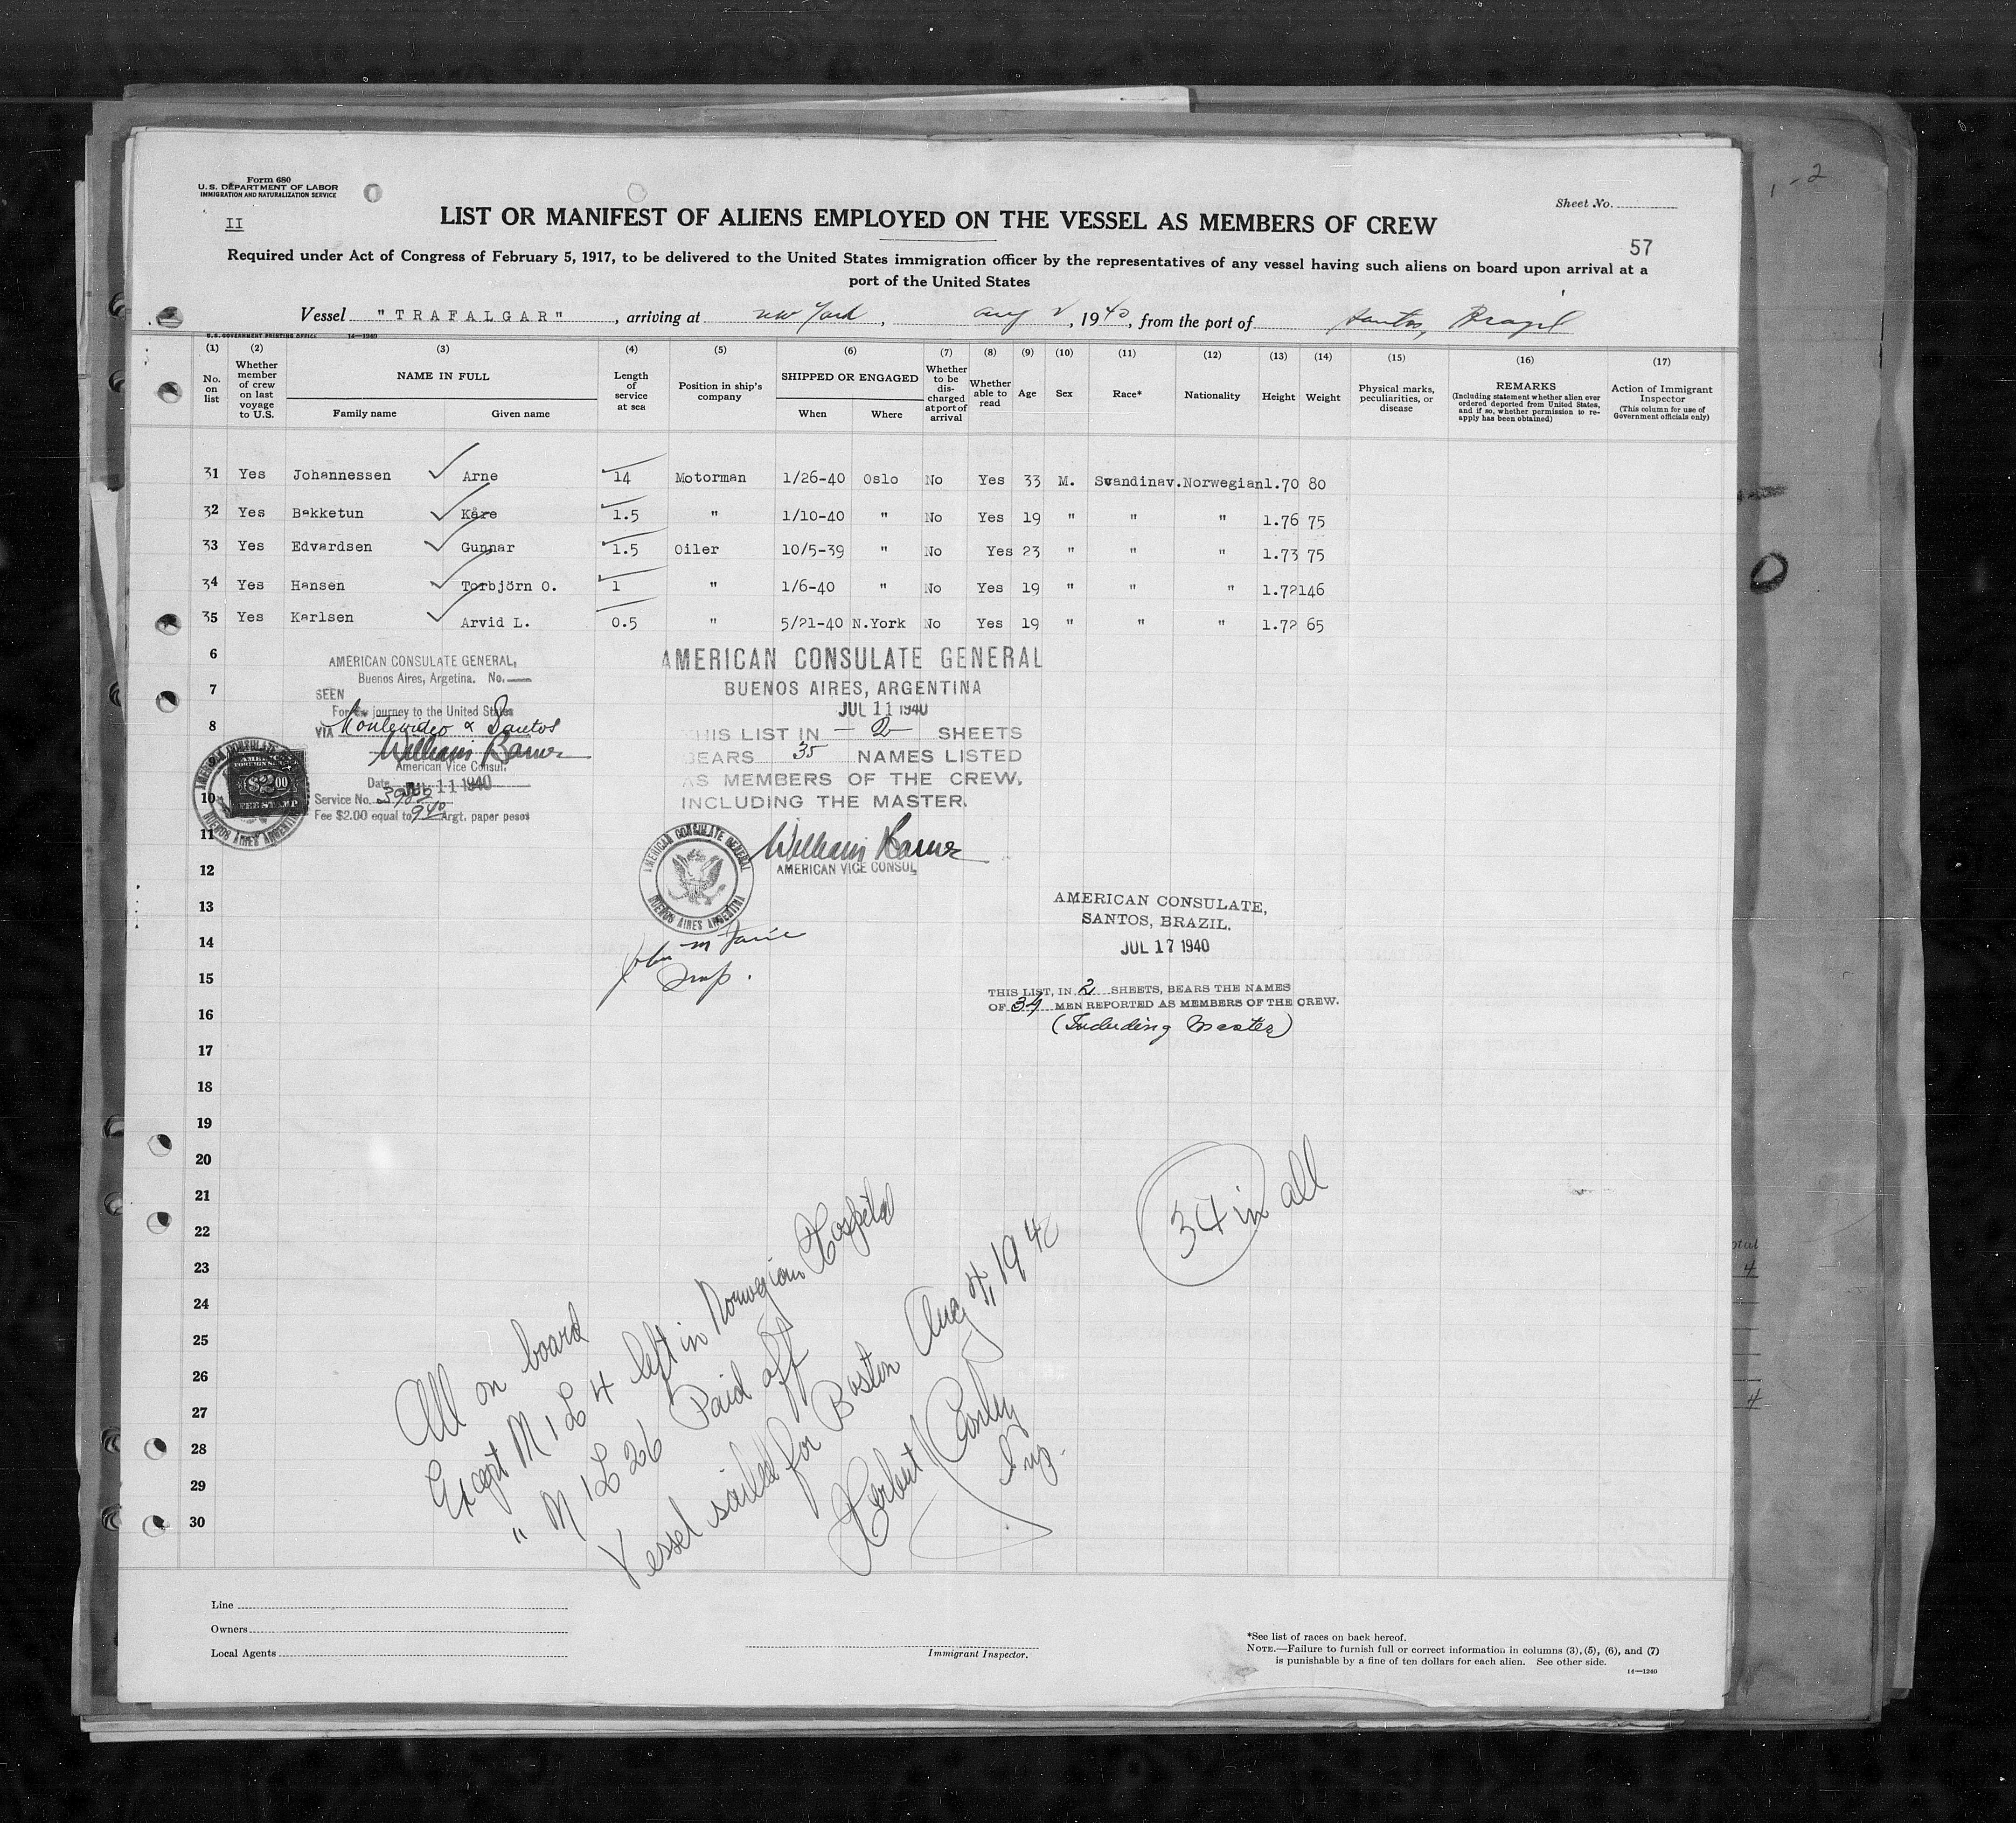 1-2
Form 680
U. S. DEPARTMENT OF LABOR
IMMIGRATION AND NATURALIZATION SERVICE
II
Sheet No.
LIST OR MANIFEST OF ALIENS EMPLOYED ON THE VESSEL AS MEMBERS OF CREW
57
Required under Act of Congress of February 5, 1917, to be delivered to the United States immigration officer by the representatives of any vessel having such aliens on board upon arrival at a
port of the United States
Vessel "TRAFALGAR", arriving at New York, Aug 2, 1940, from the port of Santos, Brazil
U. S. GOVERNMENT PRINTING OFFICE 14—1240
(1) (2) (3) (4) (5) (6) (7) (8) (9) (10) (11) (12) (13) (14) (15) (16) (17)
No. on list
Whether member of crew on last voyage to U.S.
NAME IN FULL
Family name Given name
Length of service at sea
Position in ship's company
SHIPPED OR ENGAGED
When Where
Whether to be discharged at port of arrival
Whether able to read
Age
Sex
Race*
Nationality
Height
Weight
Physical marks, peculiarities, or disease
REMARKS
(Including statement whether alien ever ordered deported from United States, and if so, whether permission to reapply has been obtained)
Action of Immigrant Inspector
(This column for use of Government officials only)
31 Yes Johannessen Arne 14 Motorman 1/26-40 Oslo No Yes 33 M. Scandinav. Norwegian 1.70 80
32 Yes Bakketun Kåre 1.5 " 1/10-40 " No Yes 19 " " " 1.76 75
33 Yes Edvardsen Gunnar 1.5 Oiler 10/5-39 " No Yes 23 " " " 1.73 75
34 Yes Hansen Torbjörn O. 1 " 1/6-40 " No Yes 19 " " " 1.72 146
35 Yes Karlsen Arvid L. 0.5 " 5/21-40 N.York No Yes 19 " " " 1.72 65
6
7
8
10
11
12
13
14
15
16
17
18
19
20
21
22
23
24
25
26
27
28
29
30
AMERICAN CONSULATE GENERAL,
Buenos Aires, Argetina. No.
SEEN
For the journey to the United States
VIA Montevideo & Santos
American Vice Consul.
Date JUL 11 1940
Service No.
Fee $2.00 equal to 9.40 Argt. paper pesos
$2.00
FEE STAMP
AMERICAN CONSULATE GENERAL
BUENOS AIRES, ARGENTINA
JUL 11 1940
THIS LIST IN - 2 - SHEETS
BEARS 35 NAMES LISTED
AS MEMBERS OF THE CREW.
INCLUDING THE MASTER.
AMERICAN VICE CONSUL
AMERICAN CONSULATE GENERAL
BUENOS AIRES ARGENTINA
Insp.
AMERICAN CONSULATE,
SANTOS, BRAZIL.
JUL 17 1940
THIS LIST, IN 2 SHEETS, BEARS THE NAMES
OF 34 MEN REPORTED AS MEMBERS OF THE CREW.
(Including Master)
34 in all
All on board
Except M 1 L 4 left in Norwegian Hospital
" M 1 L 26 Paid off
Vessel sailed for Boston Aug 4, 1940
Herbert Conley
Insp.
Line
Owners
Local Agents
Immigrant Inspector.
*See list of races on back hereof.
NOTE.—Failure to furnish full or correct information in columns (3), (5), (6), and (7)
is punishable by a fine of ten dollars for each alien. See other side.
14—1240